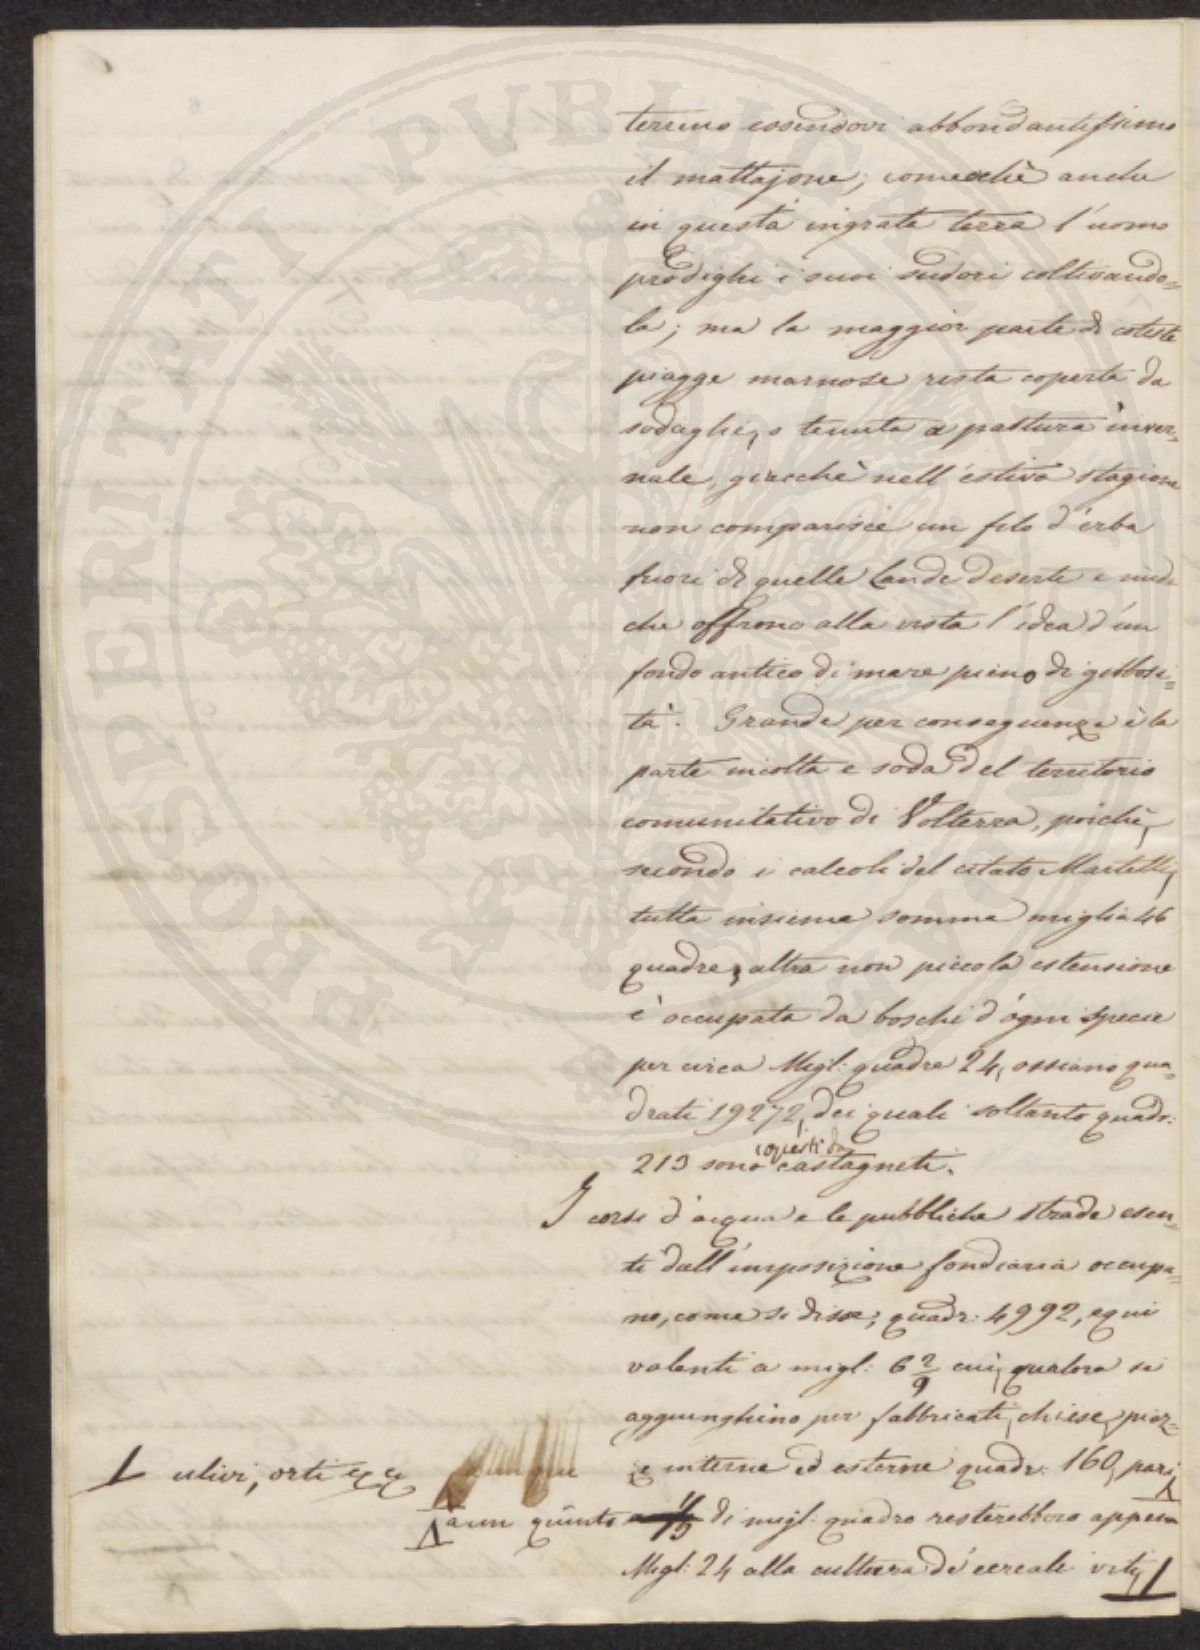 PROSPERITATI PVBLICAE
terreno essendovi abbondantissimo
il mattajone; comechè anche
in questa ingrata terra l'uomo
prodighi i suoi sudori coltivando-
la; ma la maggior parte di coteste
piagge marnose resta coperta da
sodaglie, o tenuta a pastura inver-
nale, giacchè nell'estiva stagione
non comparisce un filo d'erba
fuori di quelle lande deserte e nude
che offrono alla vista l'idea d'un
fondo antico di mare pieno di gibbosi-
tà. Grande per conseguenza è la
parte incolta e soda del territorio
comunitativo di Volterra, poichè,
secondo i calcoli del citato Martelli,
tutta insieme somma miglia 46
quadre, altra non piccola estensione
è occupata da boschi d'ogni specie
per circa Migl: quadre 24, ossiano qua-
drati 19272, dei quali soltanto quadr:
coperti da
213 sono castagneti.
I corsi d'acqua e le pubbliche strade esen-
ti dall'imposizione fondiaria occupa-
no, come si disse, quadr: 4992, equi
valenti a migl: 6 2/9 cui, qualora si
aggiunghino per fabbricati, chiese, piaz-
ze interne ed esterne quadr: 160, pari
ulivi, orti
a un quinto a 1/5 di migl: quadro resterebbero appena
Migl: 24 alla cultura de' cereali viti,